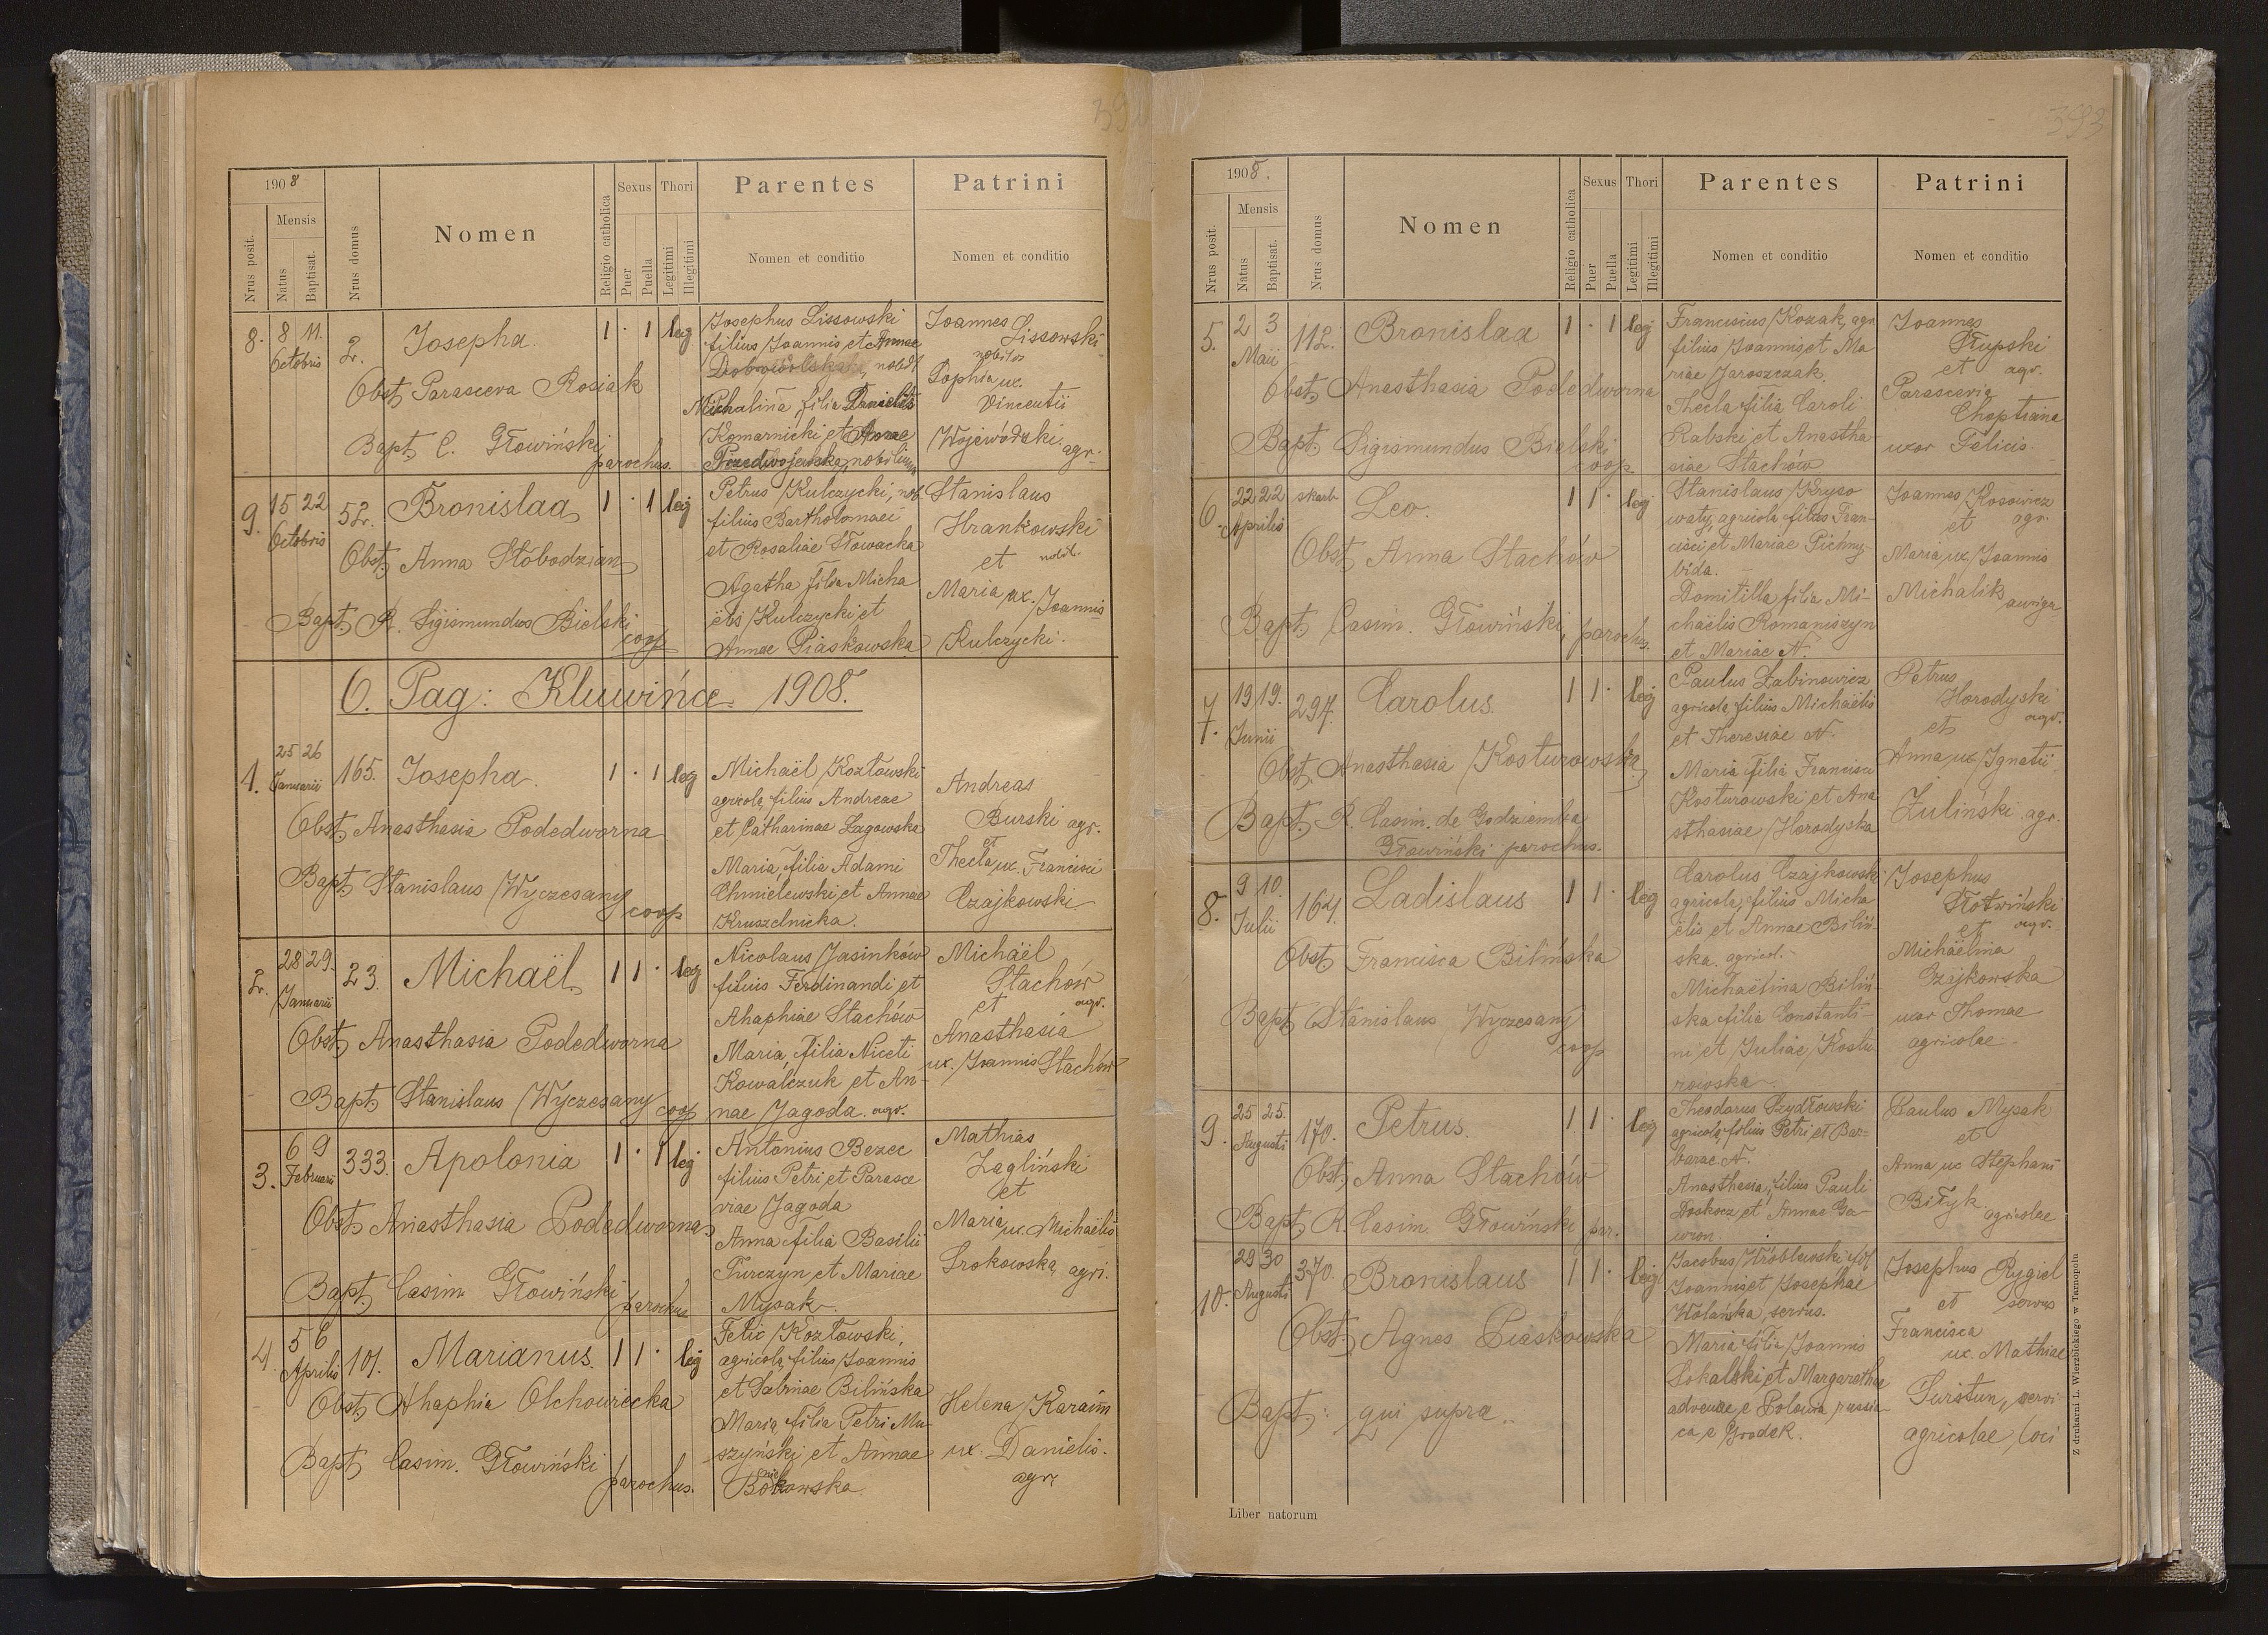 1908
Nrus posit.
Mensis
Natus
Baptisat.
Nrus domus
Nomen
Religio catholica
Sexus
Puer
Puella
Thori
Legitimi
Illegitimi
Parentes
Nomen et conditio
Patrini
Nomen et conditio
8. 8 11. Octobris 2. Josepha. 1 · 1 leg
Obst. Parasceva Rosiak
Bapt. C. Głowiński parochus.
Josephus Lissowski
filius Joannis et Annae
Michalina filia Danielis
Komarnicki et Annae
nobilium
Joannes
Lissowski
nobiles
Sophia ux.
Vincentii
Wojewódzki
agr.
9. 15 22 Octobris 52. Bronislaa 1 · 1 leg
Obst. Anna Słobodzian
Bapt. R. Sigismundus Bielski coop
Petrus Kulczycki, nob
filius Bartholomaei
et Rosaliae Słowacka
Agatha filia Micha
ëlis Kulczycki et
Annae Piaskowska
Stanislaus
Hrankowski
et nobil.
Maria ux. Joannis
Kulczycki.
6. Pag: Kluwińce 1908.
1. 25 26 Januarii 165. Josepha. 1 · 1 leg
Obst. Anasthasia Podedworna
Bapt. Stanislaus Wyczesany coop
Michaël Kozłowski
agricola, filius Andreae
et Catharinae Zagowska
Maria, filia Adami
Chmielewski et Annae
Kruszelnicka.
Andreas
Burski agr.
et
Thecla ux. Francisci
Czajkowski
2. 28 29. Januarii 23. Michaël. 1 1 · leg
Obst. Anasthasia Podedworna
Bapt. Stanislaus Wyczesany coop
Nicolaus Jasinków
filius Ferdinandi et
Ahaphiae Stachów
Maria, filia Niceti
Kowalczuk et An-
nae Jagoda. agr.
Michaël
Stachów
et agr.
Anasthasia
ux. Joannis Stachów
3. 6 9 Februarii 333. Apolonia 1 · 1 leg
Obst. Anasthasia Podedworna
Bapt. Casim. Głowiński parochus
Antonius Bezec
filius Petri et Parasce
viae Jagoda
Anna filia Basilii
Turczyn et Mariae
Mysak.
Mathias
Zagliński
et
Maria ux. Michaëlis
Srokowska, agri.
4. 5 6 Aprilis 101. Marianus. 1 1 · leg
Obst. Ahaphia Olchowiecka
Bapt. Casim. Głowiński parochus.
Felix Kozłowski,
agricola, filius Joannis
et Sabinae Bilińska
Maria, filia Petri Mu
szyński et Annae
Helena Karaim
ux. Danielis.
agr.
393
1908.
Nrus posit.
Mensis
Natus
Baptisat.
Nrus domus
Nomen
Religio catholica
Sexus
Puer
Puella
Thori
Legitimi
Illegitimi
Parentes
Nomen et conditio
Patrini
Nomen et conditio
5. 2 3 Maii 112. Bronislaa 1 · 1 leg
Obst. Anasthasia Podedworna
Bapt. Sigismundus Bielski coop
Franciscus Kozak, agr.
filius Joannis et Ma
riae Jaroszczak.
Thecla filia Caroli
Rabski et Anastha
siae Stachów
Joannes
Słupski
et agr.
Parascevia
Choptiana
uxor Felicis
6. 22 22 Aprilis skarb Leo. 1 1 · leg
Obst. Anna Stachów
Bapt. Casim. Głowiński, parochus.
Stanislaus Kryso
waty, agricola, filius Fran-
cisci et Mariae
bida.
Domitilla filia Mi-
chaëlis Romaniszyn
et Mariae N.
Joannes Kosowicz
et agr.
Maria ux. Joannis
Michalik auriga
7. 19 19. Junii 297. Carolus. 1 1 · leg
Obst. Anasthasia Kosturowska
Bapt. R. Casim. de Godziemba
Głowiński parochus.
Paulus Łabinowicz
agricola, filius Michaëlis
et Theresiae N.
Maria filia Francisci
Kosturowski et Ana
sthasiae Horodyska
Petrus
Horodyski
et agr.
Anna ux. Ignatii
Zuliński agr.
8. 9 10. Julii 164. Ladislaus 1 1 · leg
Obst. Francisca Bilińska
Bapt. Stanislaus Wyczesany
coop
Carolus Czajkowski
agricola, filius Micha
ëlis et Annae Biliń-
ska. agricol.
Michaëlina Biliń-
ska filia Constanti-
ni et Juliae Kostu-
rowska.
Josephus
Słotwiński
et agr.
Michaëlina
Czajkowska
uxor Thomae
agricolae
9. 25 25. Augusti 170. Petrus. 1 1 · leg
Obst. Anna Stachów
Bapt. R. Casim. Głowiński par.
Theodorus Szydłowski
agricola, filius Petri et Bar-
barae N.
Anasthasia, filius Pauli
Doskocz et Annae Ga-
wron.
Paulus Mysak
et
Anna ux Stephani
Biłyk agricolae
10. 29 30 Augusti 370. Bronislaus 1 1 · leg
Obst. Agnes Piaskowska
Bapt: qui supra.
Jacobus Wróblewski fil
Joannis et Josephae
Wolańska, servus.
Maria filia Joannis
Sokalski et Margarethae
advenae e Polonia russia
ca e Grodek.
Josephus Rygiel
et servus
Francisca
ux. Mathiae
Surstun, servi
agricolae loci
Liber natorum
Z drukarni L. Wierzbickiego w Tarnopolu